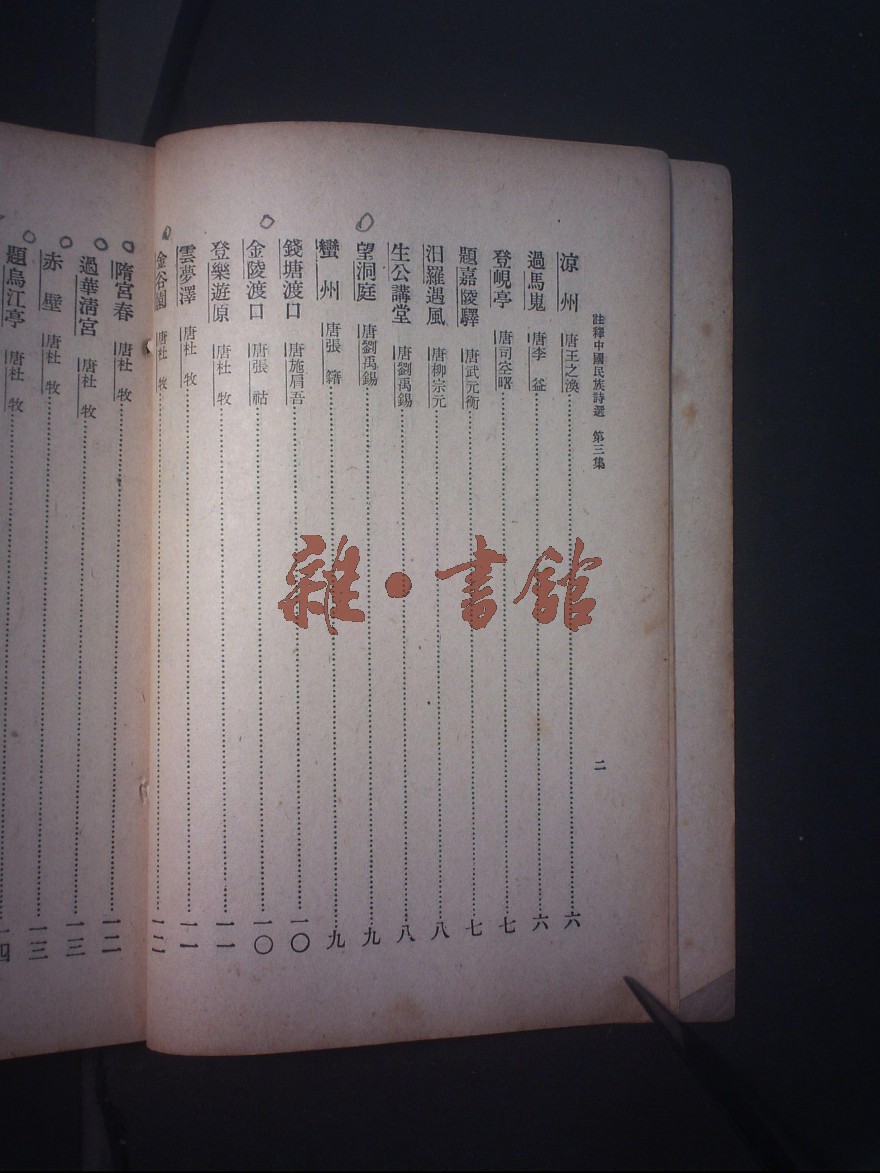 註釋中國民族詩選 第三集
二
涼州 唐王之渙 六
過馬嵬 唐李益 六
登峴亭 唐司空曙 七
題嘉陵驛 唐武元衡 七
汨羅遇風 唐柳宗元 八
生公講堂 唐劉禹錫 八
望洞庭 唐劉禹錫 九
蠻州 唐張籍 九
錢塘渡口 唐施肩吾 一〇
金陵渡口 唐張祜 一〇
登樂遊原 唐杜牧 一一
雲夢澤 唐杜牧 一一
金谷園 唐杜牧 一二
隋宮春 唐杜牧 一二
過華清宮 唐杜牧 一三
赤壁 唐杜牧 一三
題烏江亭 唐杜牧 一四
雜·書館